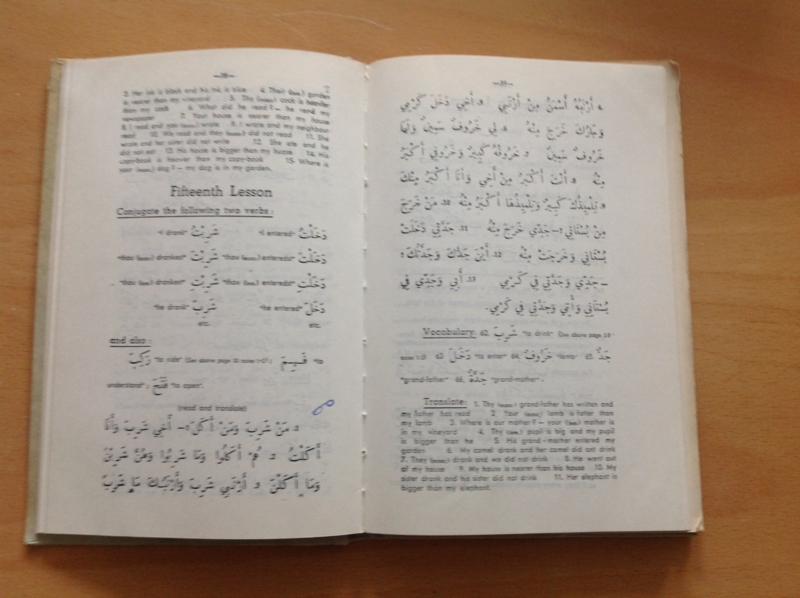 —38—
3. Her ink is black and his ink is blue 4. Their (fem.) garden
is nearer than my vineyard 5. Thy (masc.) cook is heavier
than my cook 6. What did he read? — he read my
newspaper 7. Your house is nearer than my house
8. I read and you wrote 9. I wrote and my neighbour
read 10. We read and they did not read 11. She
wrote and her sister did not write 12. She ate and he
did not eat 13. His house is bigger than my house 14. His
copy-book is heavier than my copy-book 15. Where is
your dog? — my dog is in my garden.
Fifteenth Lesson
Conjugate the following two verbs:
"I drank" شَرِبْتُ "I entered" دَخَلْتُ
"thou drankest" شَرِبْتَ "thou enteredst" دَخَلْتَ
"thou (fem.) drankest" شَرِبْتِ "thou (fem.) enteredst" دَخَلْتِ
"he drank" شَرِبَ "he entered" دَخَلَ
etc. etc.
and also:
رَكِبَ "to ride" (See above page 10 note 1-2); فَهِمَ "to
understand"; فَتَحَ "to open".
(read and translate)
مَنْ شَرِبَ وَمَنْ أَكَلَ؟ — أَخِي شَرِبَ وَأَنَا
أَكَلْتُ هُمْ أَكَلُوا وَمَا شَرِبُوا وَهُنَّ شَرِبْنَ
وَمَا أَكَلْنَ أَرْنَبِي شَرِبَ وَأَرْنَبُكَ مَا شَرِبَ
—39—
أَرْنَبُهُ أَسْمَنُ مِنْ أَرْنَبِي أَخِي دَخَلَ كَرْمِي
وَجَارُكَ خَرَجَ مِنْهُ لِي خَرُوفٌ سَمِينٌ وَلَهَا
خَرُوفٌ سَمِينٌ خَرُوفُهُ كَبِيرٌ وَخَرُوفِي أَكْبَرُ
مِنْهُ أَنْتَ أَكْبَرُ مِنْ أَخِي وَأَنَا أَكْبَرُ مِنْكَ
تِلْمِيذُكَ كَبِيرٌ وَتِلْمِيذُهَا أَكْبَرُ مِنْهُ 10. مَنْ خَرَجَ
مِنْ بُسْتَانِي؟ — جَدِّي خَرَجَ مِنْهُ 11. جَدَّتِي دَخَلَتْ
بُسْتَانِي وَخَرَجَتْ مِنْهُ 12. أَيْنَ جَدُّكَ وَجَدَّتُكَ؟
— جَدِّي وَجَدَّتِي فِي كَرْمِي 13. أَبِي وَجَدِّي فِي
بُسْتَانِي وَأُمِّي وَجَدَّتِي فِي كَرْمِي.
Vocabulary: 62. شَرِبَ "to drink" (See above page 10
note 1-2) 63. دَخَلَ "to enter" 64. خَرُوفٌ "lamb" جَدٌّ
"grand-father" 66. جَدَّةٌ "grand-mother".
Translate: 1. Thy grand-father has written and
my father has read 2. Your lamb is fatter than
my lamb 3. Where is our mother? — your mother is
in my vineyard 4. Thy pupil is big and my pupil
is bigger than he 5. His grand-mother entered my
garden 6. My camel drank and her camel did not drink
7. They drank and we did not drink 8. He went out
of my house 9. My house is nearer than his house 10. My
sister drank and his sister did not drink 11. Her elephant is
bigger than my elephant.